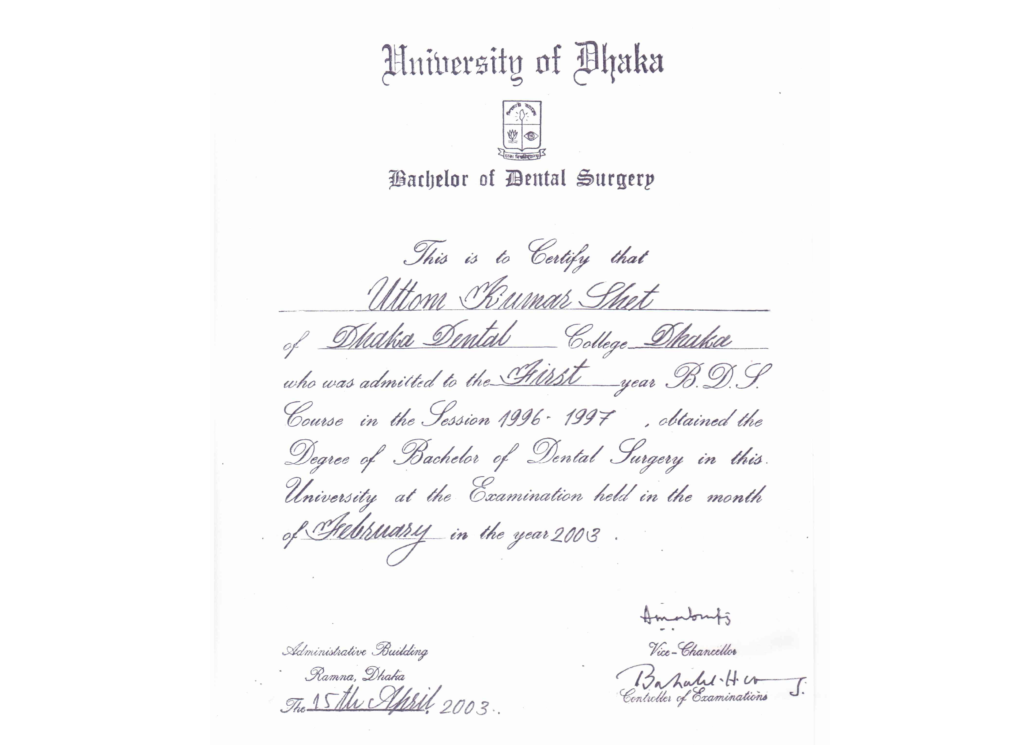 University of Dhaka
Bachelor of Dental Surgery
This is to Certify that
Uttom Kumar Shet
of Dhaka Dental College Dhaka
who was admitted to the First year B.D.S.
Course in the Session 1996-1997 , obtained the
Degree of Bachelor of Dental Surgery in this
University at the Examination held in the month
of February in the year 2003 .
Administrative Building
Ramna, Dhaka
The 15th April 2003.
Vice-Chancellor
Controller of Examinations